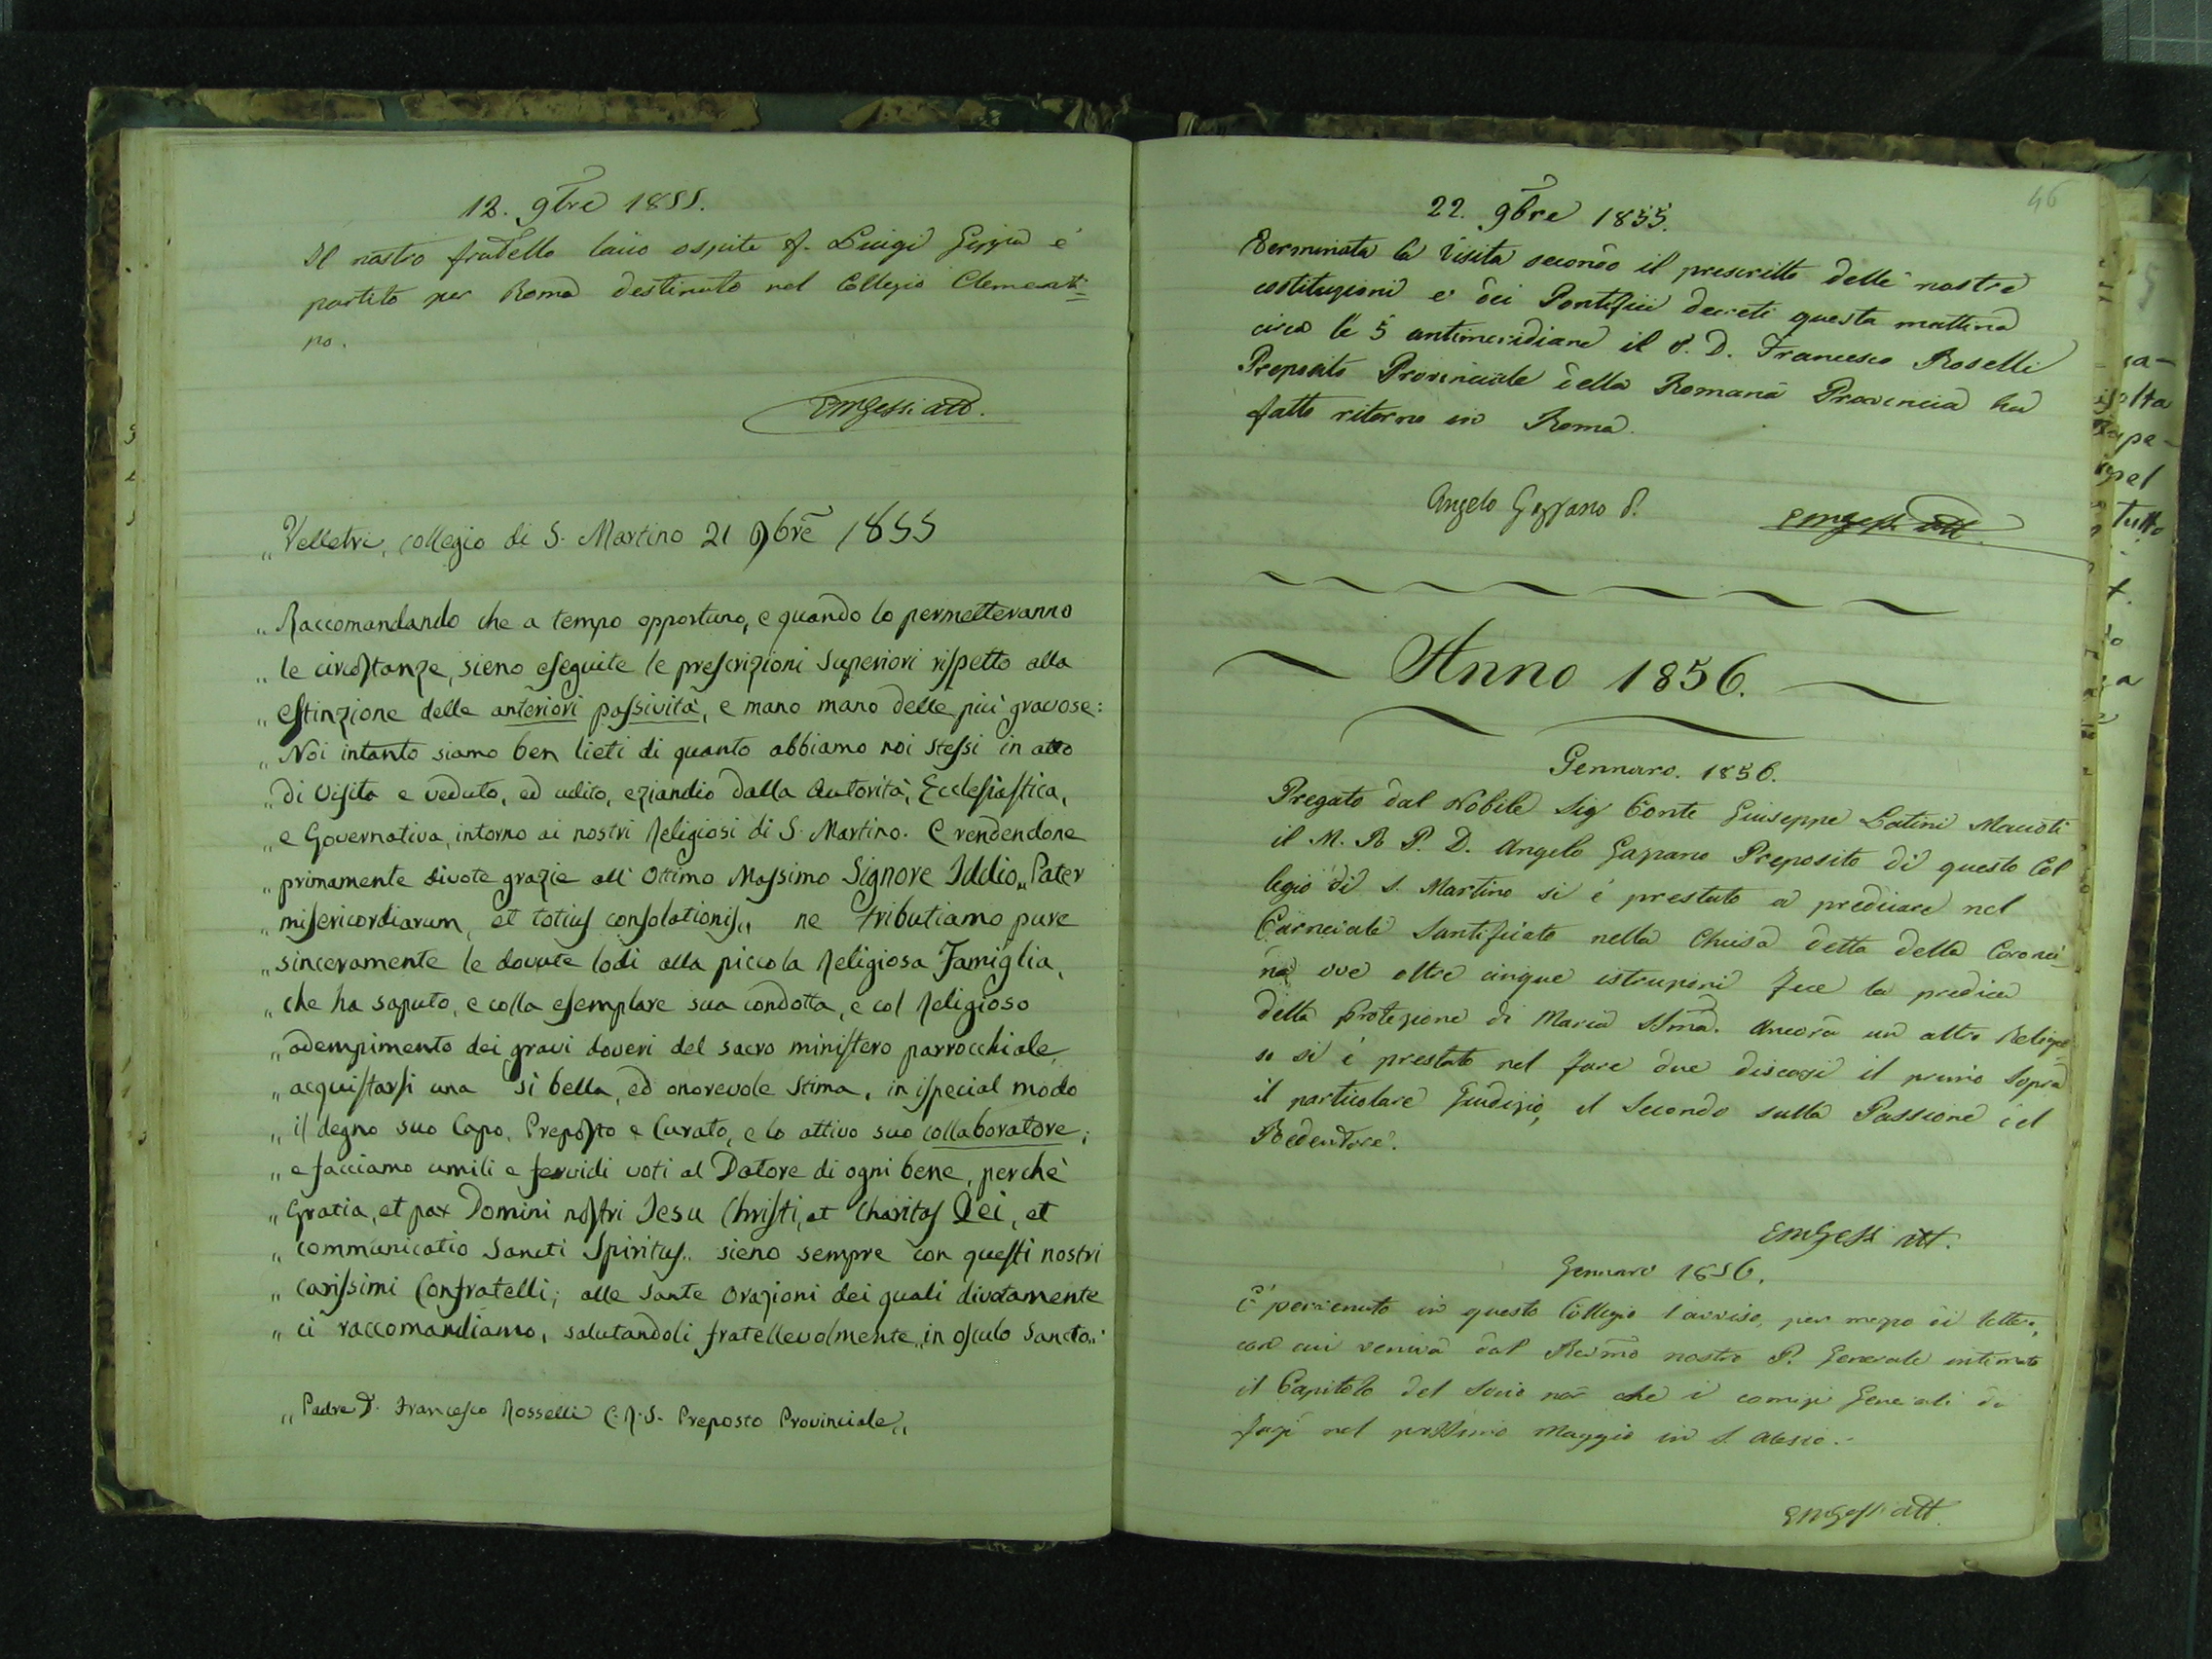 12. 9bre 1855.
Il nostro fratello laico ospite f. Luigi è
partito per Roma destinato nel Collegio Clementi=
no.
EmGessi att.
„Velletri, collegio di S. Martino 21 9bre 1855
„Raccomandando che a tempo opportuno, e quando lo permetteranno
„le circostanze, sieno eseguite le prescrizioni Superiori rispetto alla
„estinzione delle anteriori passività, e mano mano delle più gravose:
„Noi intanto siamo ben lieti di quanto abbiamo noi stessi in atto
„di Visita e veduto, ed udito, eziandio dalla Autorità, Ecclesiastica,
„e Governativa, intorno ai nostri Religiosi di S. Martino. E rendendone
„primamente divote grazie all' Ottimo Massimo Signore Iddio„ Pater
„misericordiarum, et totius consolationis„ ne tributiamo pure
„sinceramente le dovute lodi alla piccola Religiosa Famiglia,
„che ha saputo, e colla esemplare sua condotta, e col Religioso
„adempimento dei gravi doveri del sacro ministero parrocchiale,
„acquistarsi una sì bella, ed onorevole stima, in ispecial modo
„il degno suo Capo, Preposto e Curato, e lo attivo suo collaboratore;
„e facciamo umili e fervidi voti al Datore di ogni bene, perchè
„Gratia, et pax Domini nostri Jesu Christi, et Charitas Dei, et
„communicatio Sancti Spiritus„ sieno sempre con questi nostri
„carissimi Confratelli; alle Sante Orazioni dei quali divotamente
„ci raccomandiamo, salutandoli fratellevolmente„ in osculo Sancto„
„Padre D. Francesco Rosselli C.R.S. Preposto Provinciale„
46
22. 9bre 1855.
Terminata la Visita secondo il prescritto delle nostre
costituzioni e dei Pontificii decreti questa mattina
circa le 5 antimeridiane il P. D. Francesco Roselli
Preposito Provinciale della Romana Provincia ha
fatto ritorno in Roma.
Angelo Gazzano P.
EmGessi att.
Anno 1856.
Gennaro. 1856.
Pregato dal Nobile Sig Conte Giuseppe Latini Macioti
il M. R. P. D. Angelo Gazzano Preposito di questo Col
legio di S. Martino si è prestato a predicare nel
Carnevale Santificato nella Chiesa detta della Coronci
na ove oltre cinque istruzioni fece la predica
della protezione di Maria SSma. Ancora un altro Religio
so si è prestato nel fare due discorsi il primo Sopra
il particolare Giudizio, il Secondo sulla Passione del
Redentore.
EmGessi att.
Gennaro 1856.
È pervenuto in questo Collegio l'avviso, per mezzo di lettera,
con cui veniva dal Revmo nostro P. Generale intimato
il Capitolo del Socio che i comizi Generali da
farsi nel prossimo Maggio in S. Alessio.
EmGessi att.